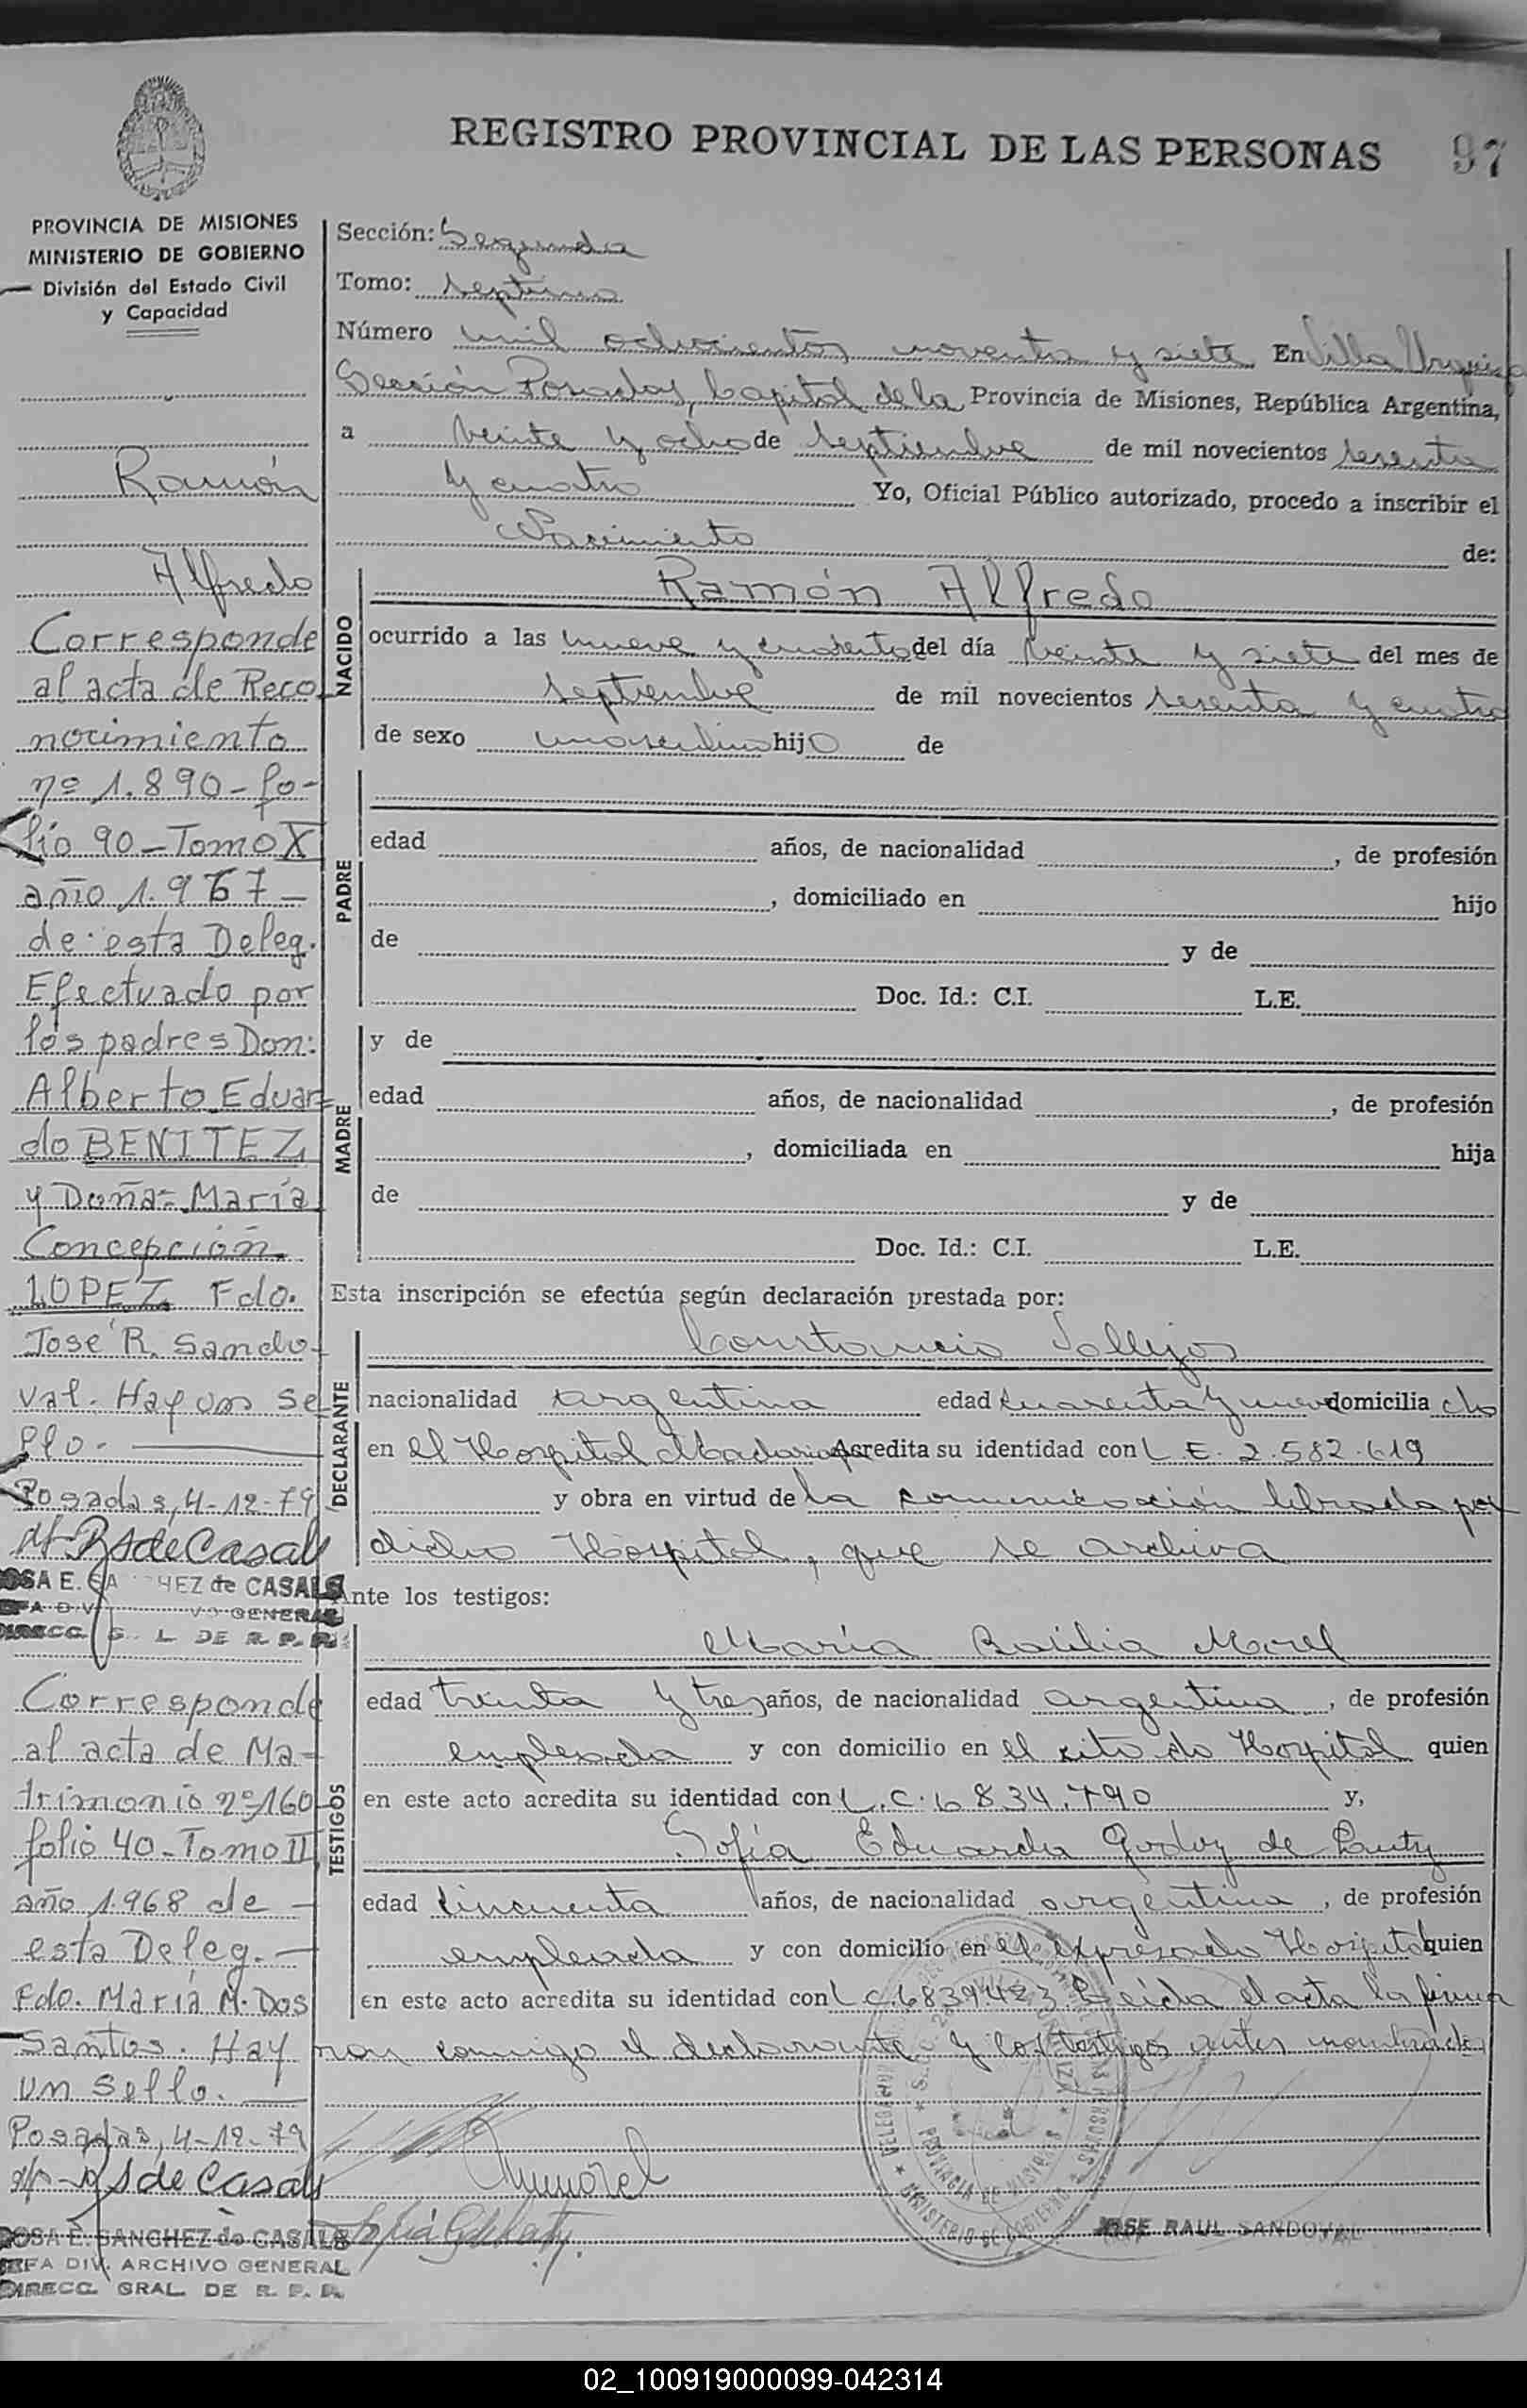 REGISTRO PROVINCIAL DE LAS PERSONAS 97
PROVINCIA DE MISIONES
MINISTERIO DE GOBIERNO
División del Estado Civil
y Capacidad
Ramón
Alfredo
Corresponde
al acta de Reco
nocimiento
nº 1.890 - fo-
lio 90 - Tomo X
año 1.967 -
de esta Deleg.
Efectuado por
los padres Don:
Alberto Eduar-
do BENITEZ
y Doña: María
Concepción
LOPEZ Fdo.
José R. Sando-
val. Hay un se
llo.
Posadas, 4-12-79
RS de Casals
ROSA E. SANCHEZ de CASALS
GENERAL
DIRECC. G L DE R. P. P.
Corresponde
al acta de Ma-
trimonio nº 160
folio 40 - Tomo II
año 1.968 de -
esta Deleg. -
Fdo. María M. Dos
Santos. Hay
un sello.
Posadas, 4-12-79
RS de Casals
ROSA E. SANCHEZ de CASALS
JEFA DIV. ARCHIVO GENERAL
DIRECC. GRAL. DE R. P. P.
Sección: Segunda
Tomo: septimo
Número mil ochocientos noventa y siete En Villa Urquiza
Sección Posadas, Capital de la Provincia de Misiones, República Argentina,
a veinte y ocho de septiembre de mil novecientos sesenta
y cuatro Yo, Oficial Público autorizado, procedo a inscribir el
Nacimiento de:
NACIDO
Ramón Alfredo
ocurrido a las nueve y cuarenta del día veinte y siete del mes de
septiembre de mil novecientos sesenta y cuatro
de sexo masculino hijo de
PADRE
edad años, de nacionalidad , de profesión
, domiciliado en hijo
de y de
Doc. Id.: C.I. L.E.
MADRE
y de
edad años, de nacionalidad , de profesión
, domiciliada en hija
de y de
Doc. Id.: C.I. L.E.
Esta inscripción se efectúa según declaración prestada por:
DECLARANTE
Constancio Vallejos
nacionalidad argentina edad cuarenta y nueve domicilia do
en el Hospital Madariaga Acredita su identidad con L.E. 2.582.619
y obra en virtud de la comunicación librada por
dicho Hospital, que se archiva
Ante los testigos:
TESTIGOS
María Basilia Morel
edad treinta y tres años, de nacionalidad argentina, de profesión
empleada y con domicilio en el cito do Hospital quien
en este acto acredita su identidad con L.C. 6834.790 y,
Sofía Eduarda Godoy de Lauty
edad cincuenta años, de nacionalidad argentina, de profesión
empleada y con domicilio en el expresado Hospital quien
en este acto acredita su identidad con L.C. 6839423 Leida el acta la firma
ron conmigo el declarante y los testigos antes nombrados
AMMorel
JOSE RAUL SANDOVAL
PROVINCIA DE MISIONES
MINISTERIO DE GOBIERNO
02_100919000099-042314